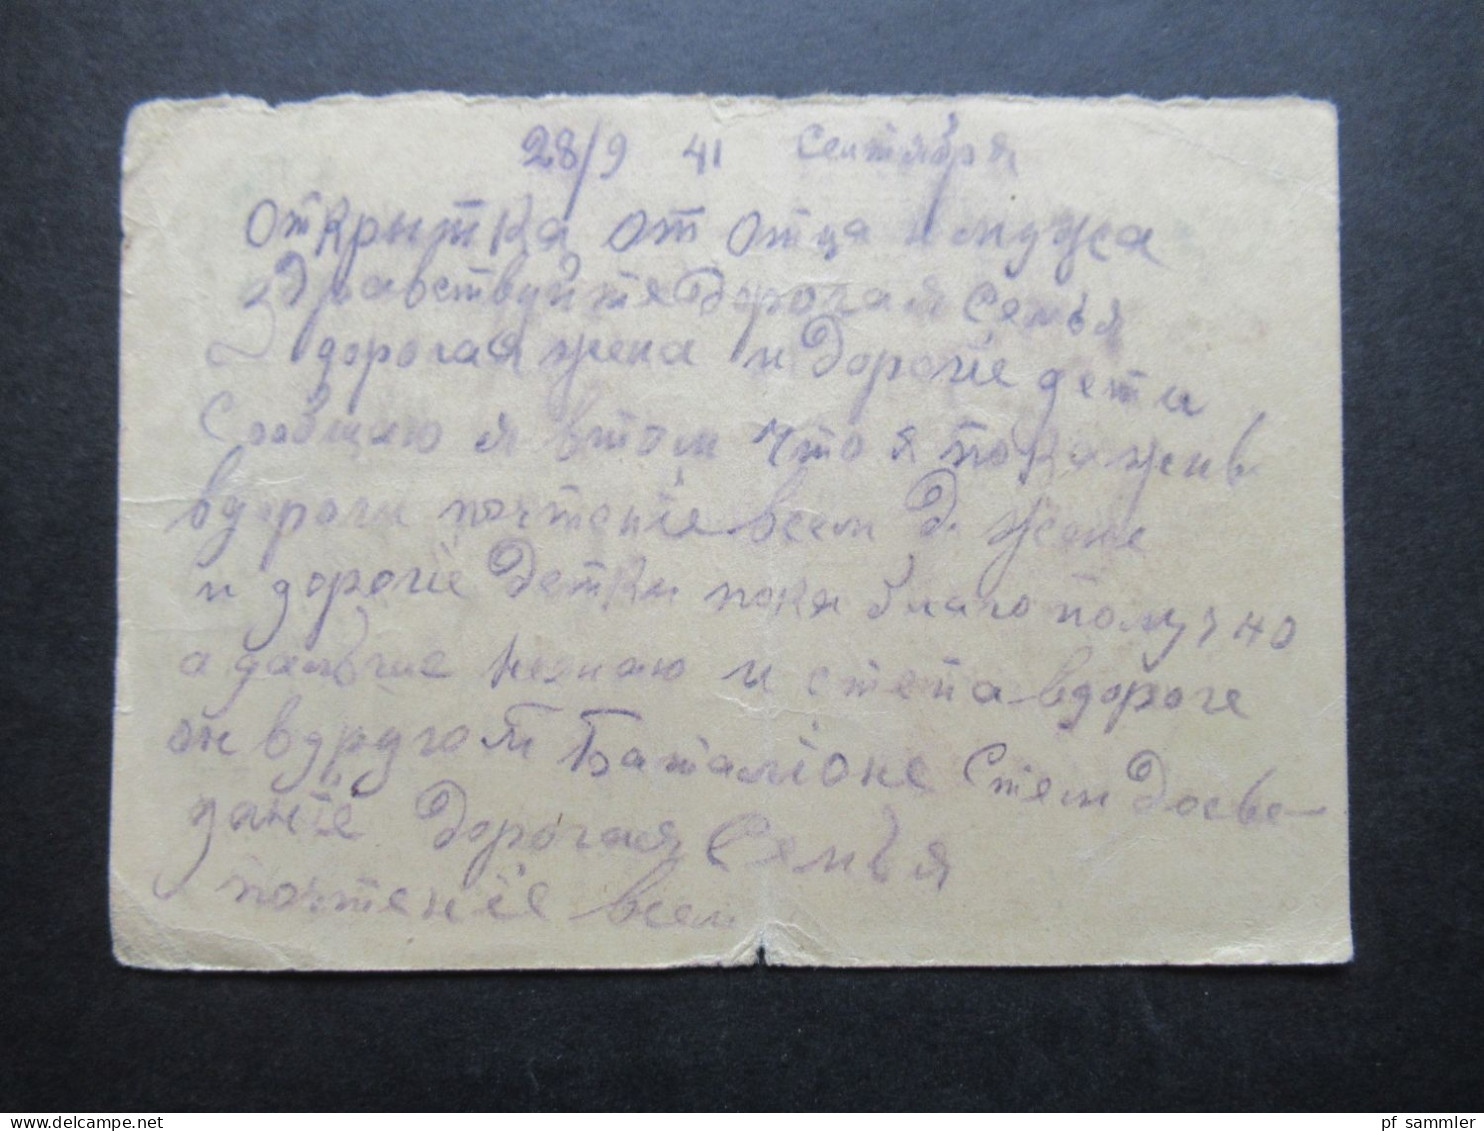 28/9 41 Сентября
Открытка от отца и мужа
здравствуйте дорогая Семья
дорогая жена и дорогіе дети
Сообщаю я втом что я пока жив
вдороги почтеніе всем д. жене
и дорогіе детки пока благополучно
а дальше незнаю и степа вдороге
он вдругом Баталіоне Стем досве-
даніе дорогая Семья
почтеніе всем
www.delcampe.net
pf_sammler